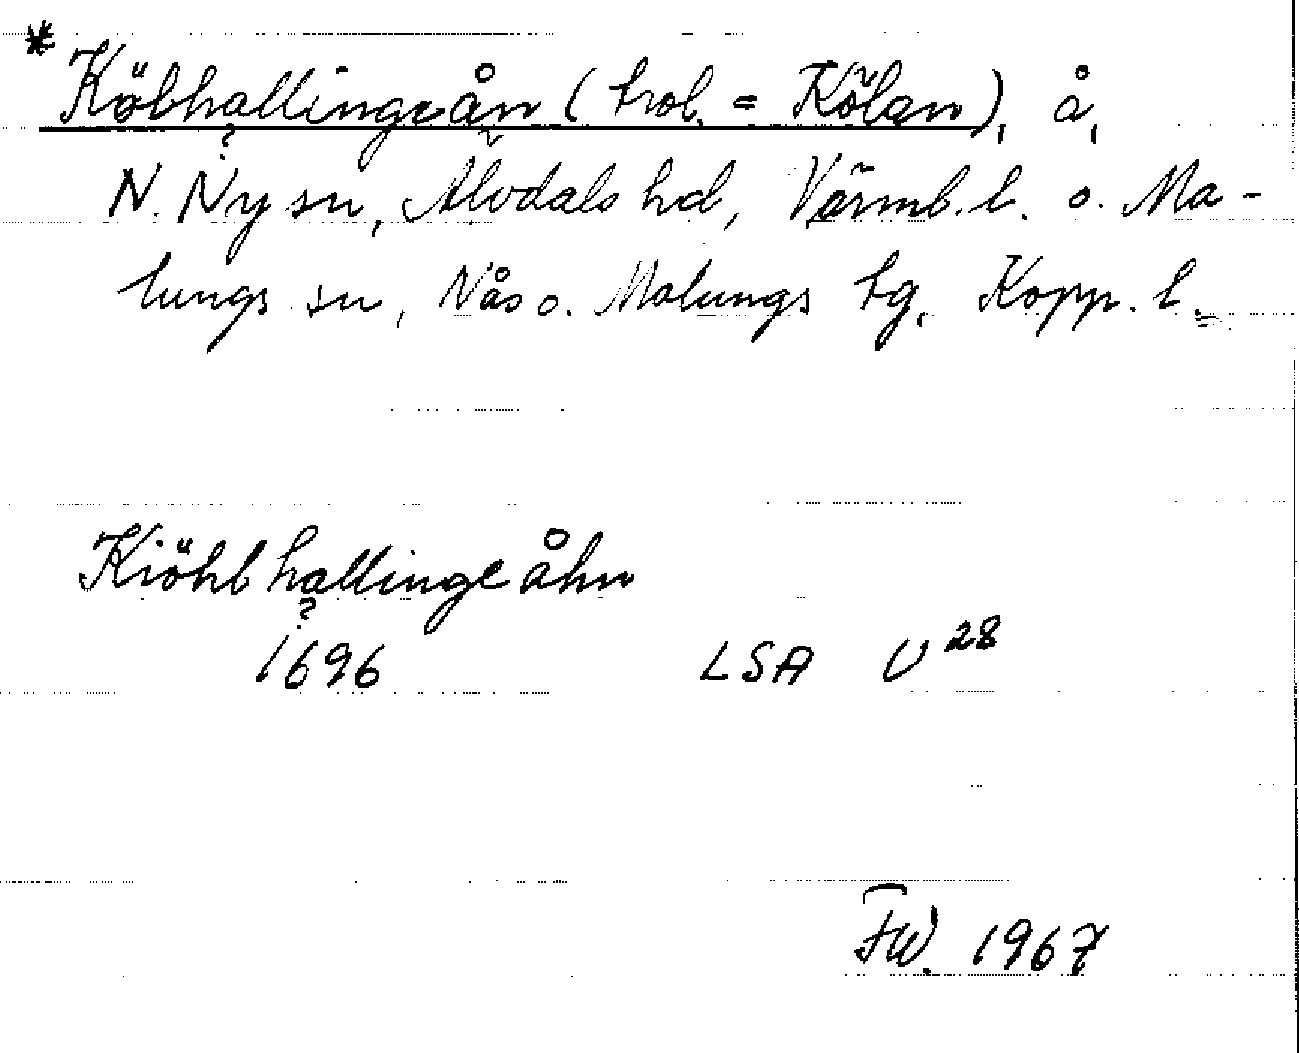 * Kölhallingeån (trol. = Kölan), å,
?
N. Ny sn, Älvdals hd, Värml. l. o. Ma-
lungs sn, Nås o. Malungs tg, Kopp. l.
Kiöhlhallinge åhn
?
1696 LSA U 28
FW. 1967